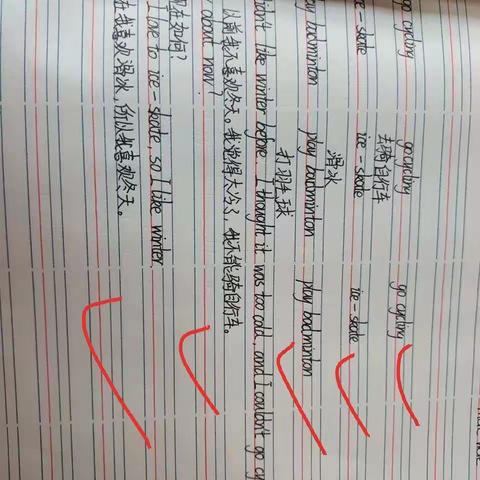 go cycling go cycling go cycling
去骑自行车
ice-skate ice-skate ice-skate
滑冰
play badminton play badminton play badminton
打羽毛球
didn't like winter before. I thought it was too cold, and I couldn't go cy
以前我不喜欢冬天。我觉得太冷了，我不能骑自行车。
about now?
现在如何?
I love to ice-skate, so I like winter.
在我喜欢滑冰,所以我喜欢冬天。